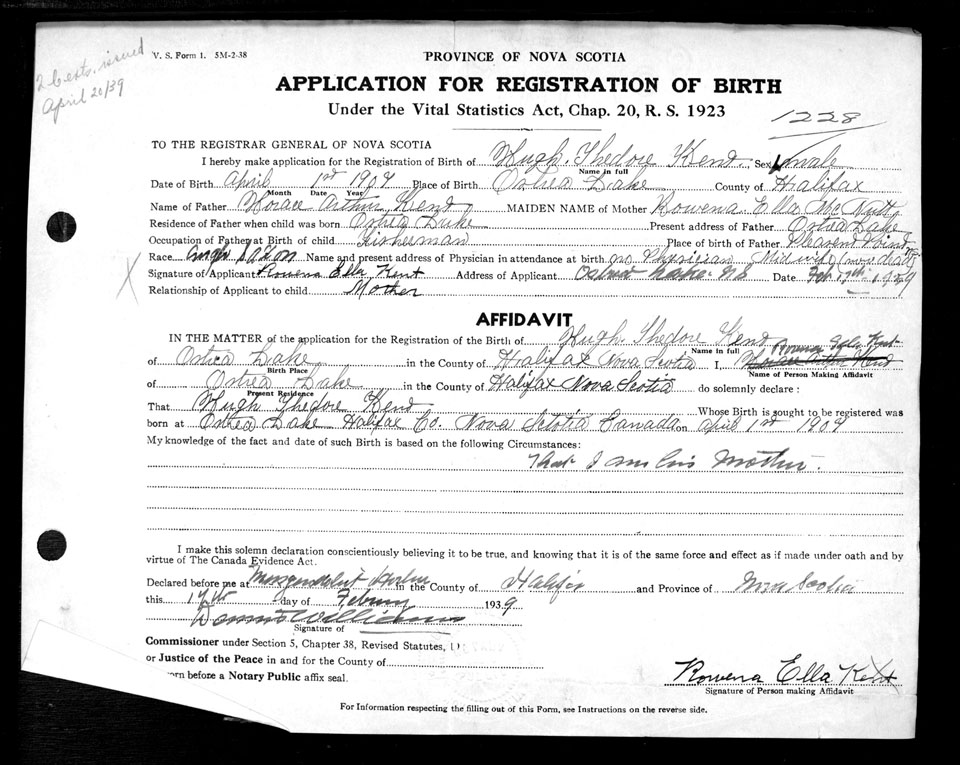 2 certs. issued
April 20/39
V. S. Form 1. 5M-2-38
PROVINCE OF NOVA SCOTIA
APPLICATION FOR REGISTRATION OF BIRTH
Under the Vital Statistics Act, Chap. 20, R. S. 1923
1228
TO THE REGISTRAR GENERAL OF NOVA SCOTIA
I hereby make application for the Registration of Birth of Hugh Thedore Kent Sex male
Name in full
Date of Birth April 1st 1909 Place of Birth Ostrea Lake County of Halifax
Month Date Year
Name of Father Horace Arthur Kent MAIDEN NAME of Mother Rowena Ella Mc Nutt
Residence of Father when child was born Ostrea Lake Present address of Father Ostrea Lake
Occupation of Father at Birth of child Fisherman Place of Birth of Father Pleasent Point
Race Anglo Saxon Name and present address of Physician in attendance at birth no Physician Midwife (now dead)
Signature of Applicant Rowena Ella Kent Address of Applicant Ostrea Lake N S Date Feb 17th 1939
Relationship of Applicant to child Mother
AFFIDAVIT
IN THE MATTER of the application for the Registration of the Birth of Hugh Thedore Kent
Name in full
Rowena Ella Kent
of Ostrea Lake in the County of Halifax Nova Scotia I, Horace Arthur Kent
Birth Place Name of Person Making Affidavit
of Ostrea Lake in the County of Halifax Nova Scotia do solemnly declare:
Present Residence
That Hugh Thedore Kent Whose Birth is sought to be registered was
born at Ostrea Lake Halifax Co. Nova Scotia Canada on April 1st 1909
My knowledge of the fact and date of such Birth is based on the following Circumstances:
That I am his Mother.
I make this solemn declaration conscientiously believing it to be true, and knowing that it is of the same force and effect as if made under oath and by
virtue of The Canada Evidence Act.
Declared before me at Musquodoboit Harbour in the County of Halifax and Province of Nova Scotia
this 17th day of February 1939
Signature of
Commissioner under Section 5, Chapter 38, Revised Statutes,
or Justice of the Peace in and for the County of
orn before a Notary Public affix seal.
Rowena Ella Kent
Signature of Person making Affidavit
For Information respecting the filling out of this Form, see Instructions on the reverse side.